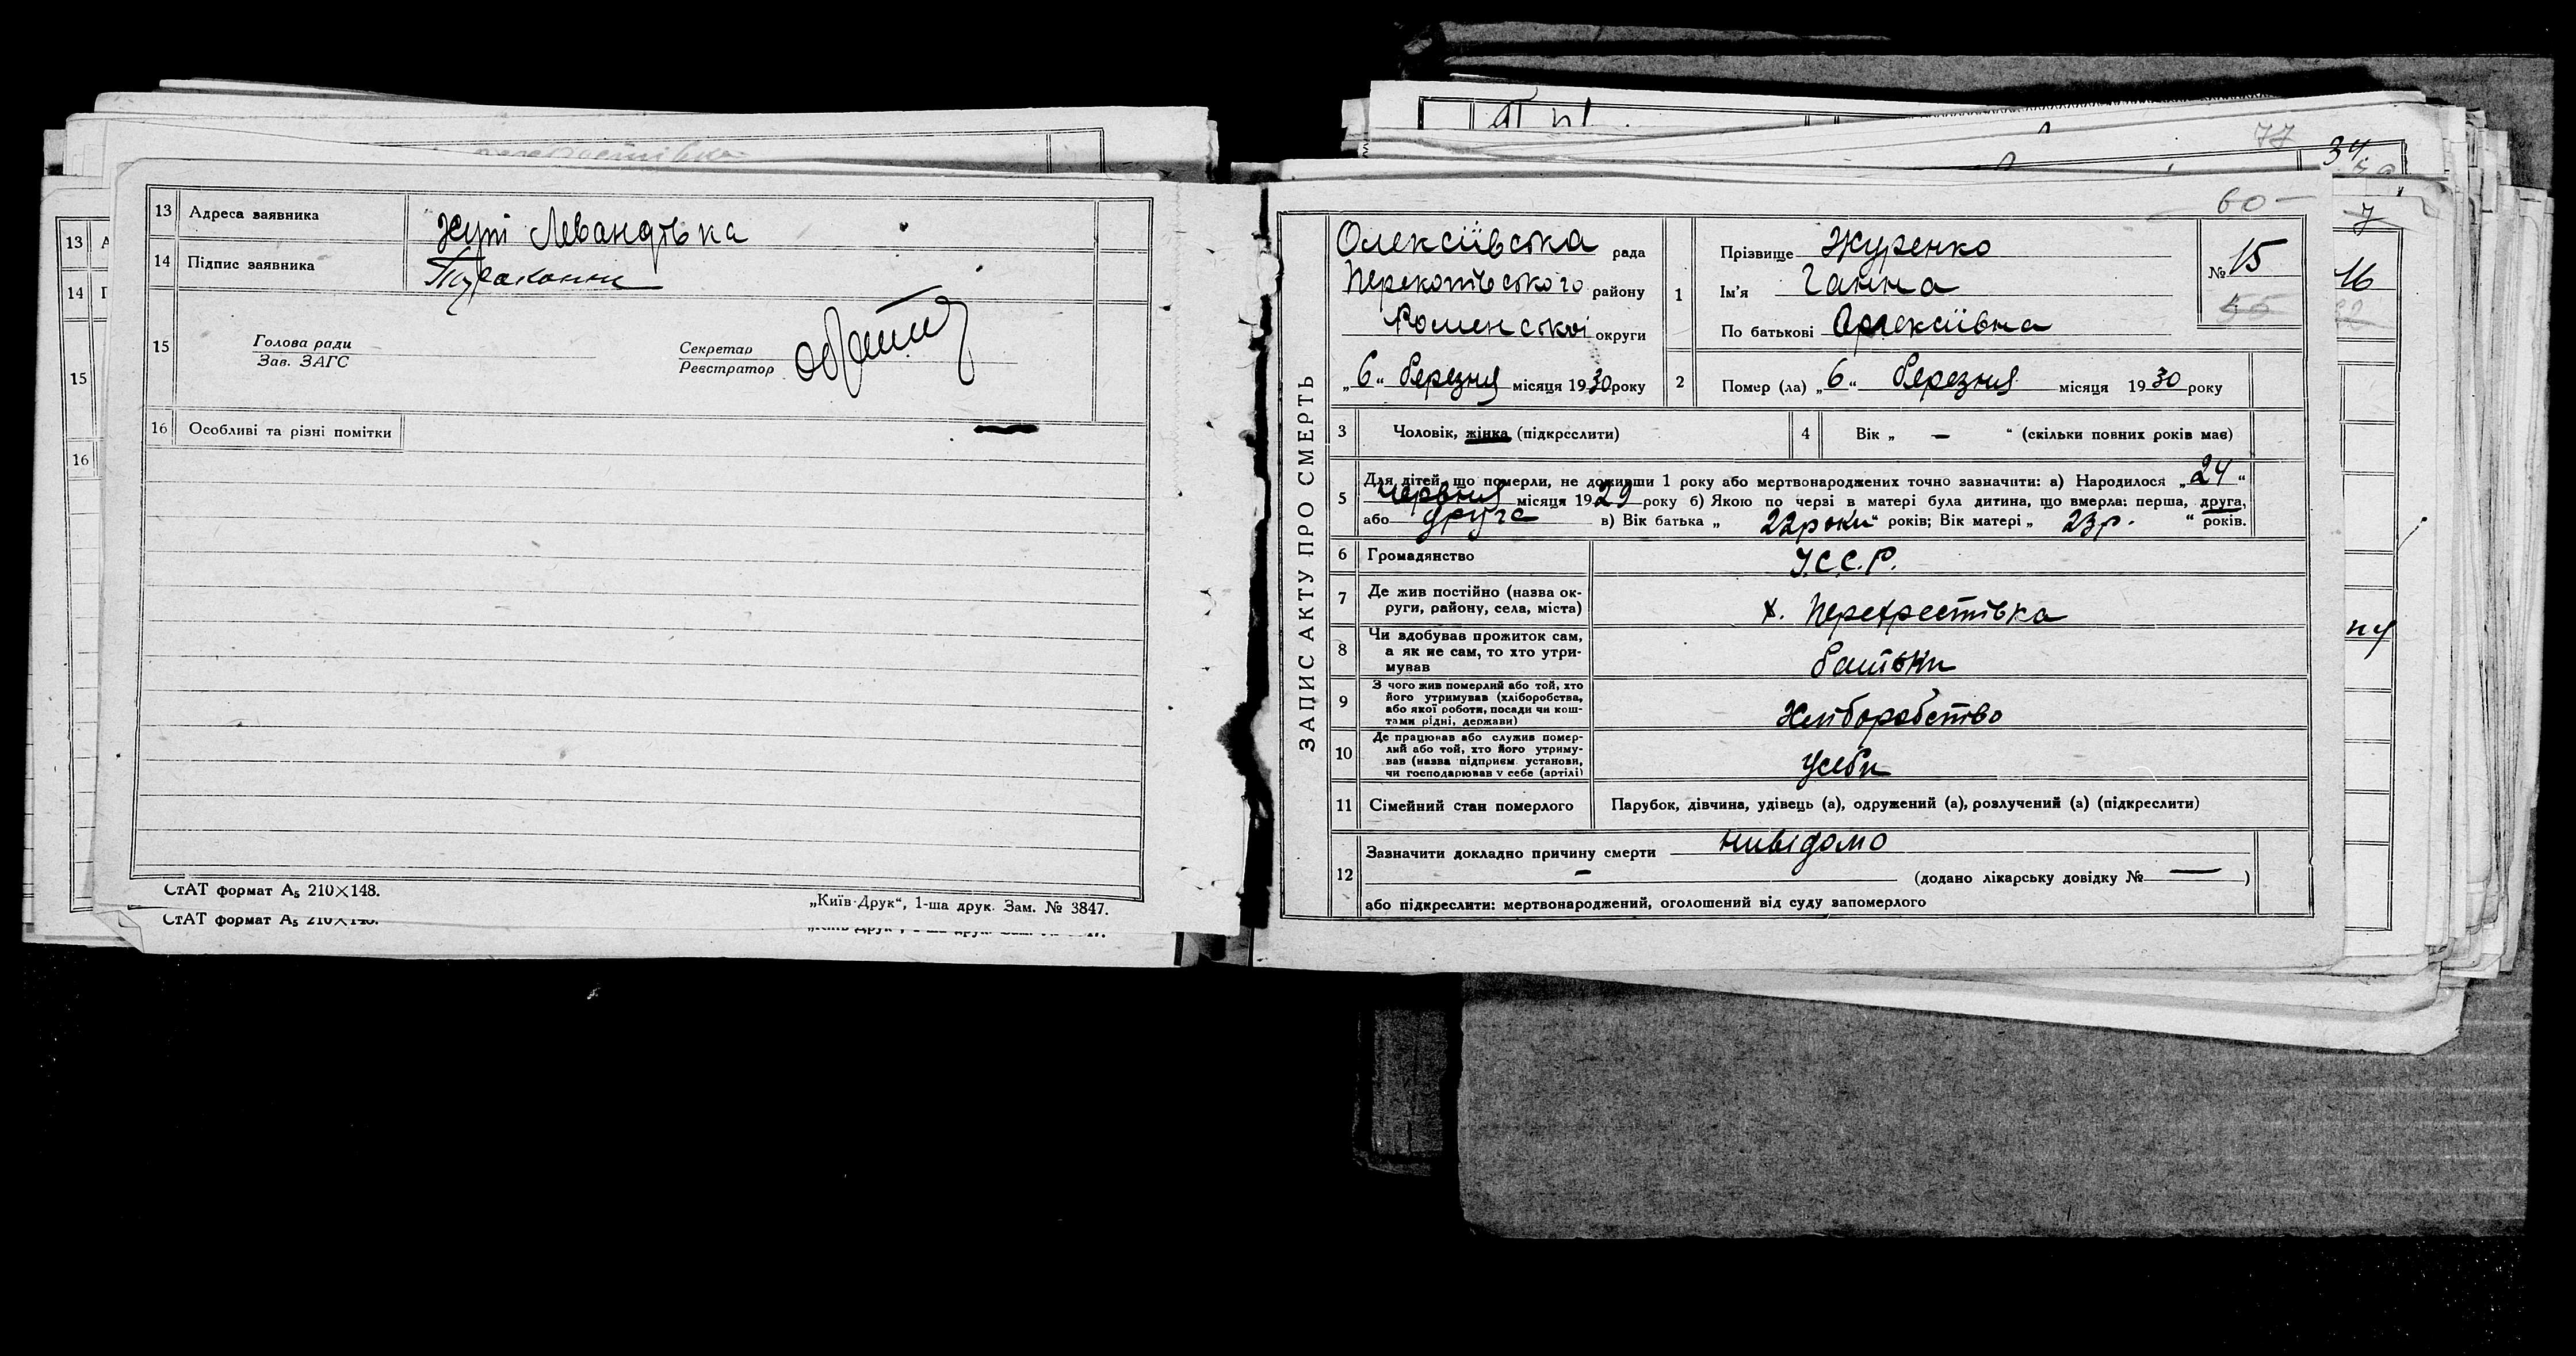 13 Адреса заявника Хуті Левандівка
14 Підпис заявника
15 Голова ради
Зав. ЗАГС
Секретар
Реєстратор
16 Особливі та різні помітки —
СтАТ формат А₅ 210×148.
„Київ-Друк“, 1-ша друк. Зам. № 3847.
СтАТ формат А₅ 210×148.
13
14
15
16
77
34
60 —
7
16
ЗАПИС АКТУ ПРО СМЕРТЬ
Олексіївська рада
Перекопівського району
Роменської округи
„6“ березня місяця 1930 року
1 Прізвище Журенко
Ім'я Ганна
По батькові Олексіївна
№ 15
55
2 Помер (ла) „6“ березня місяця 1930 року
3 Чоловік, жінка (підкреслити)
4 Вік „ — “ (скільки повних років має)
5 Для дітей, що померли, не доживши 1 року або мертвонароджених точно зазначити: а) Народилося „24“
червня місяця 1929 року б) Якою по черзі в матері була дитина, що вмерла: перша, друга,
або друга в) Вік батька „22роки“ років; Вік матері „23р.“ років.
6 Громадянство У.С.С.Р.
7 Де жив постійно (назва округи, району, села, міста) х. Перехрестівка
8 Чи здобував прожиток сам,
а як не сам, то хто утримував батьки
9 З чого жив померлий або той, хто
його утримував (хліборобства,
або якої роботи, посади чи коштами рідні, держави) Хліборобство
10 Де працював або служив померлий або той, хто його утримував (назва підприєм. установи,
чи господарював у себе (артілі) усеби
11 Сімейний стан померлого Парубок, дівчина, удівець (а), одружений (а), розлучений (а) (підкреслити)
12 Зазначити докладно причину смерти нивідомо
— (додано лікарську довідку № — )
або підкреслити: мертвонароджений, оголошений від суду запомерлого